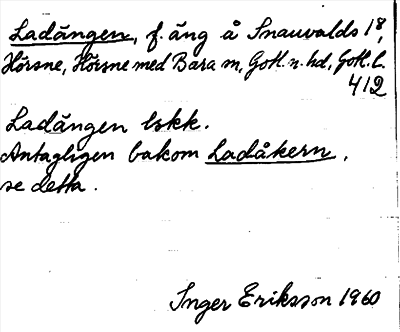 Ladängen, f. äng å Snauvalds 18,
Hörsne, Hörsne med Bara sn, Gotl. n. hd, Gotl. l.
412
Ladängen lskk.
Antagligen bakom Ladåkern,
se detta.
Inger Eriksson 1960